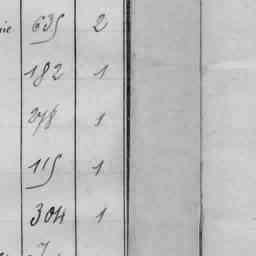 635 2
182 1
278 1
115 1
304 1